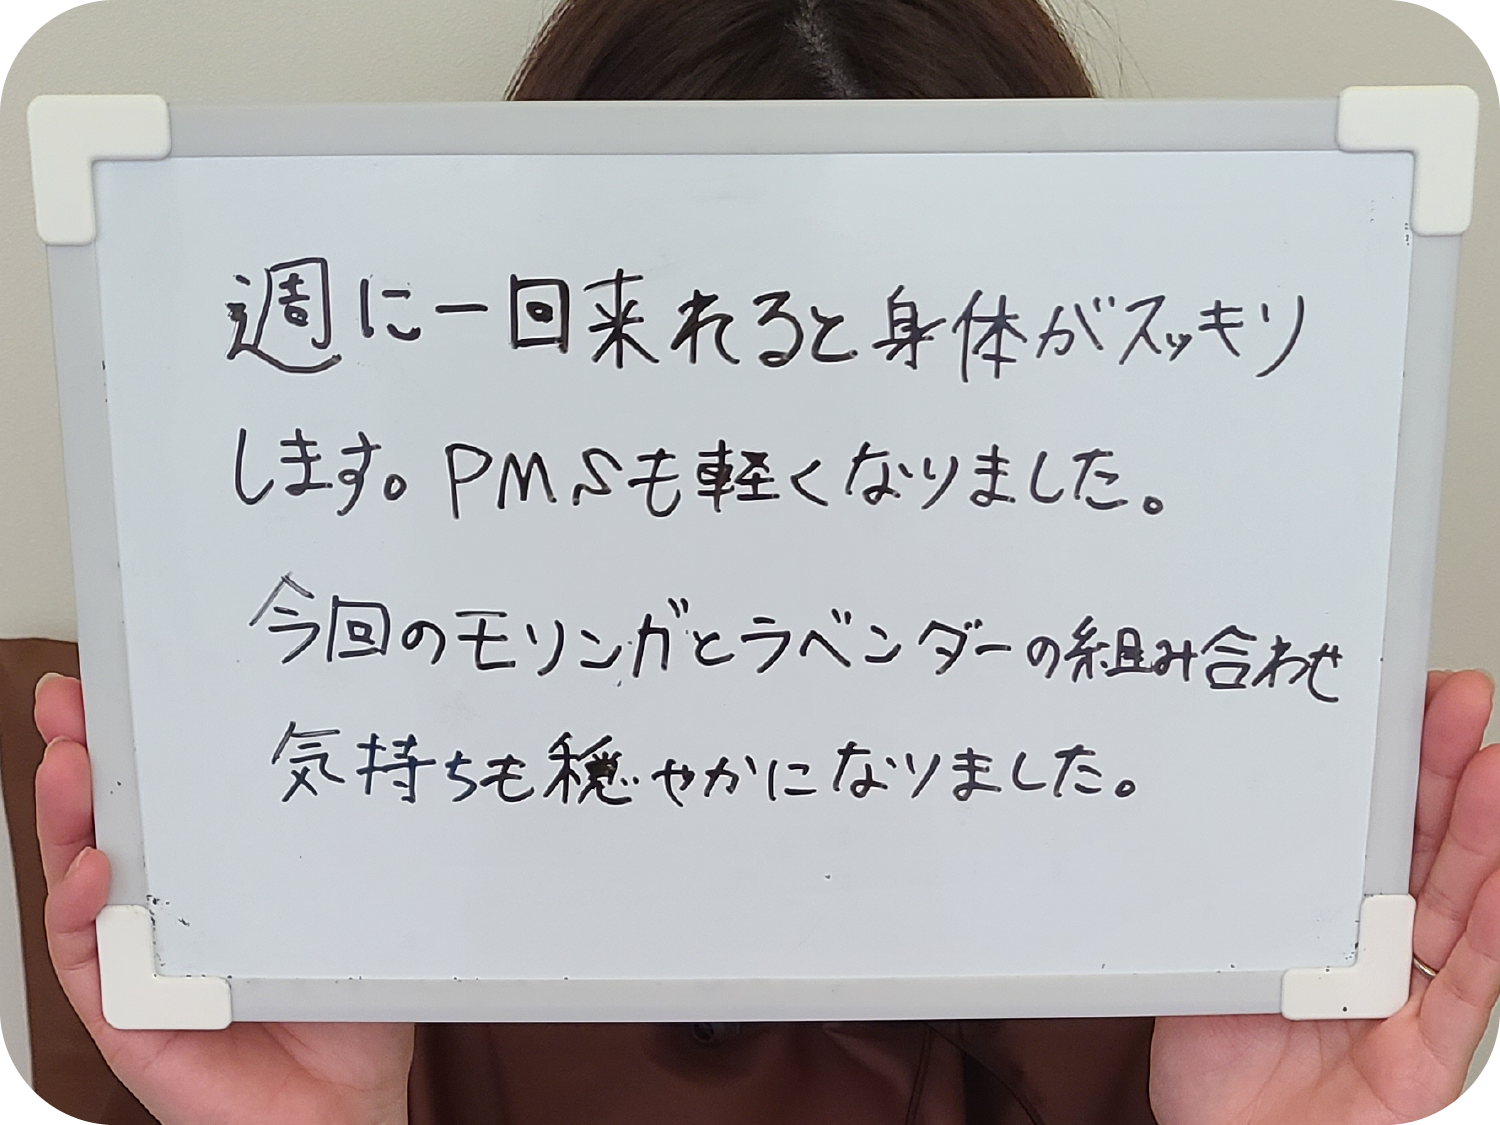 週に一回来れると身体がスッキリ
します。PMSも軽くなりました。
今回のモリンガとラベンダーの組み合わせ
気持ちも穏やかになりました。